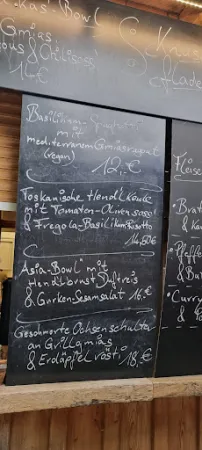 Bowl
Gmias,
& Chilisoss
14€
S' Knus
Basilikum-
mit
mediterranem Gmiasragout
(vegan)
12,-€
Toskanische Hendlkeule
mit Tomaten-Olivensoss
& Fregola-BasilikumRisotto
14,50€
Asia-Bowl" mit
Hendlbrust, Duftreis
& Gurken-Sesamsalat 16,-€
Geschmorte Ochsenschulter
an Grillgmias
& Erdäpfelrösti 18,-€
Fleisc
• Brat
& K
• Pfeffe
& Ba
• Curry